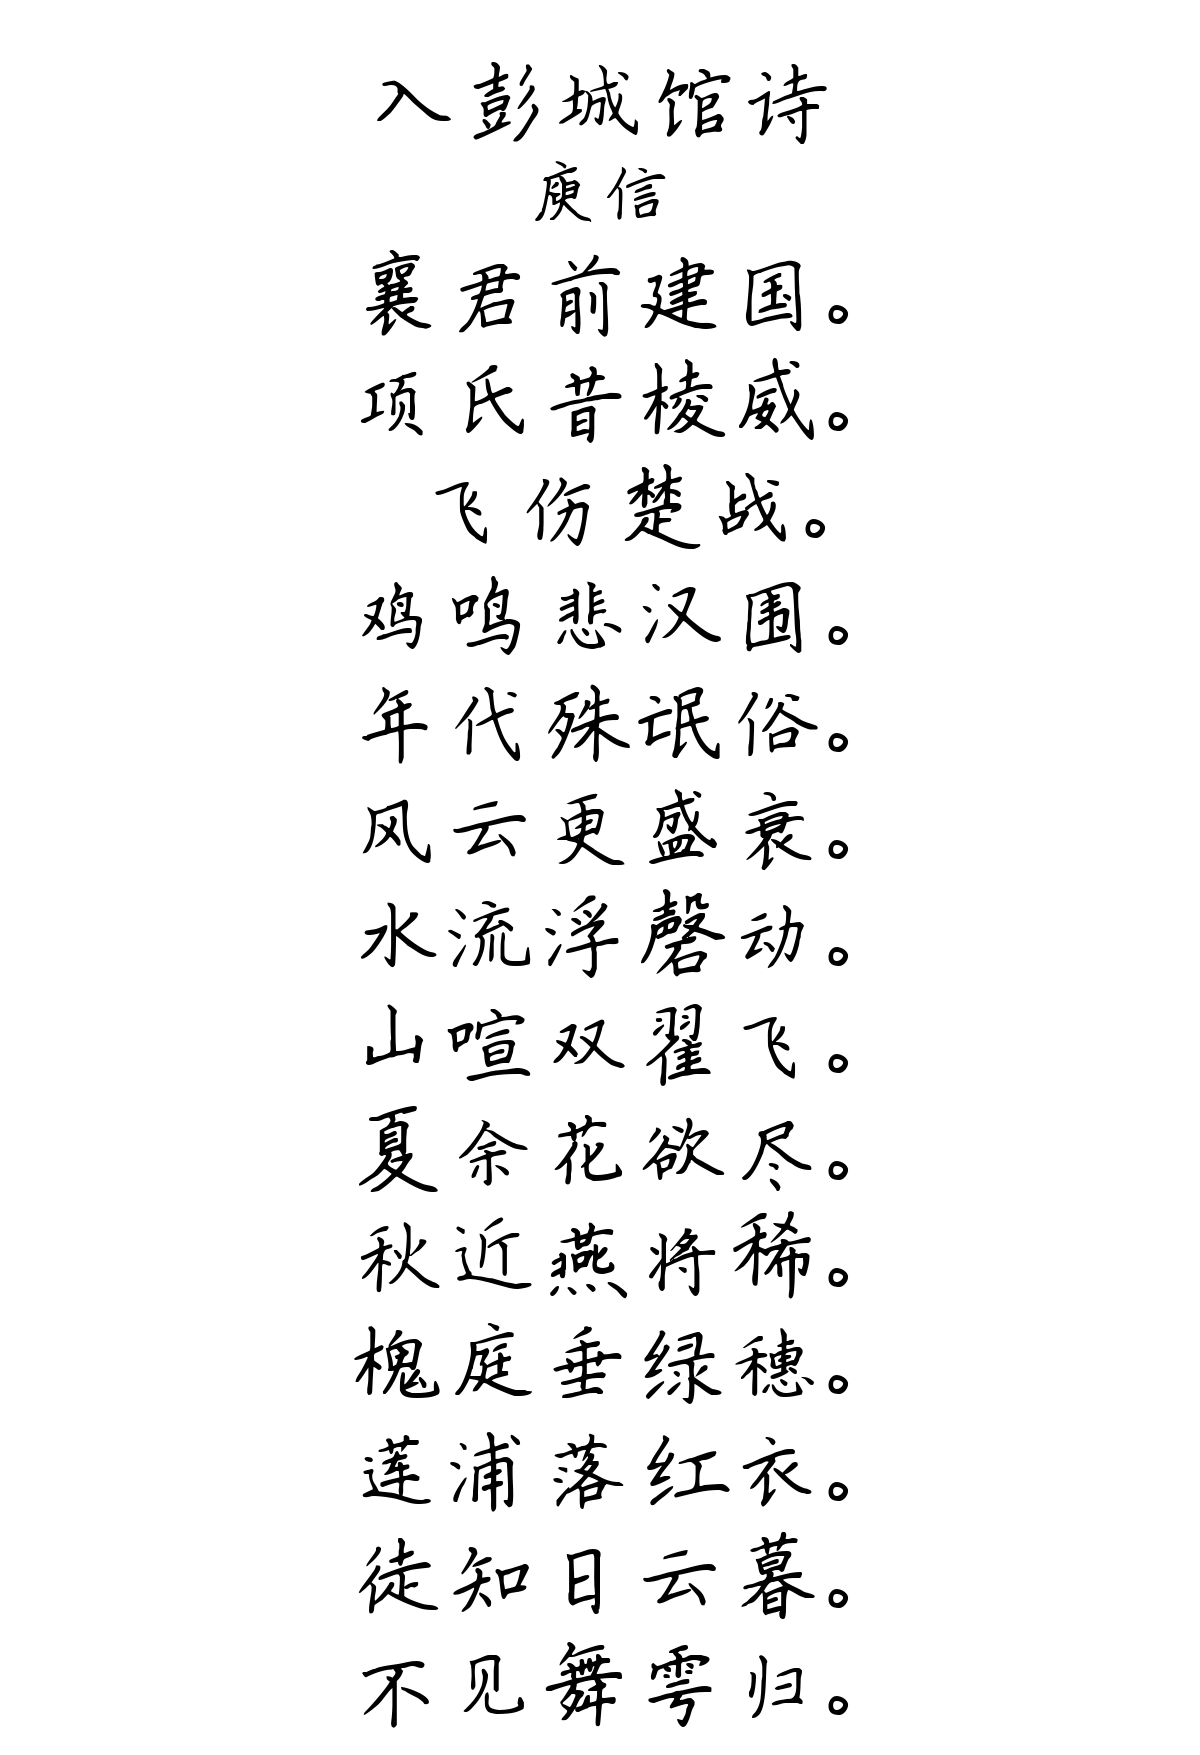 入彭城馆诗
庾信
襄君前建国。
项氏昔棱威。
飞伤楚战。
鸡鸣悲汉围。
年代殊氓俗。
风云更盛衰。
水流浮磬动。
山喧双翟飞。
夏余花欲尽。
秋近燕将稀。
槐庭垂绿穗。
莲浦落红衣。
徒知日云暮。
不见舞雩归。